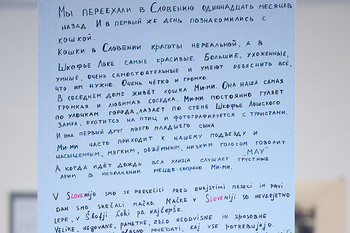 Мы переехали в Словению одиннадцать месяцев
назад. И в первый же день познакомились с
кошкой.
Кошки в Словении красоты нереальной, а в
Шкофье Локе самые красивые. Большие, ухоженные,
умные, очень самостоятельные и умеют объяснить всё,
что им нужно. Очень чётко и громко.
В соседнем доме живёт кошка Ми-ми. Она наша самая
громкая и любимая соседка. Ми-ми постоянно гуляет
по улочкам города, лазает по стене Шкофье Лошского
замка, охотится на птиц и фотографируется с туристами.
И она первый друг моего младшего сына.
Ми-ми часто приходит к нашему подъезду и
насыщенным, мягким, объёмным, низким голосом говорит
"МАУ".
А когда идёт дождь вся улица слушает грустные
арии в исполнении меццо-сопрано Ми-ми.
V SLOVEnijo smo se preselili pred enajstimi meseci in prvi
dan smo srečali mačko. Mačke v SLOVEniji so neverjetno
lepe, v Škofji Loki pa najlepše.
Velike, negovane, pametne, zelo neodvisne in sposobne
povedati, kaj vse potrebujejo.